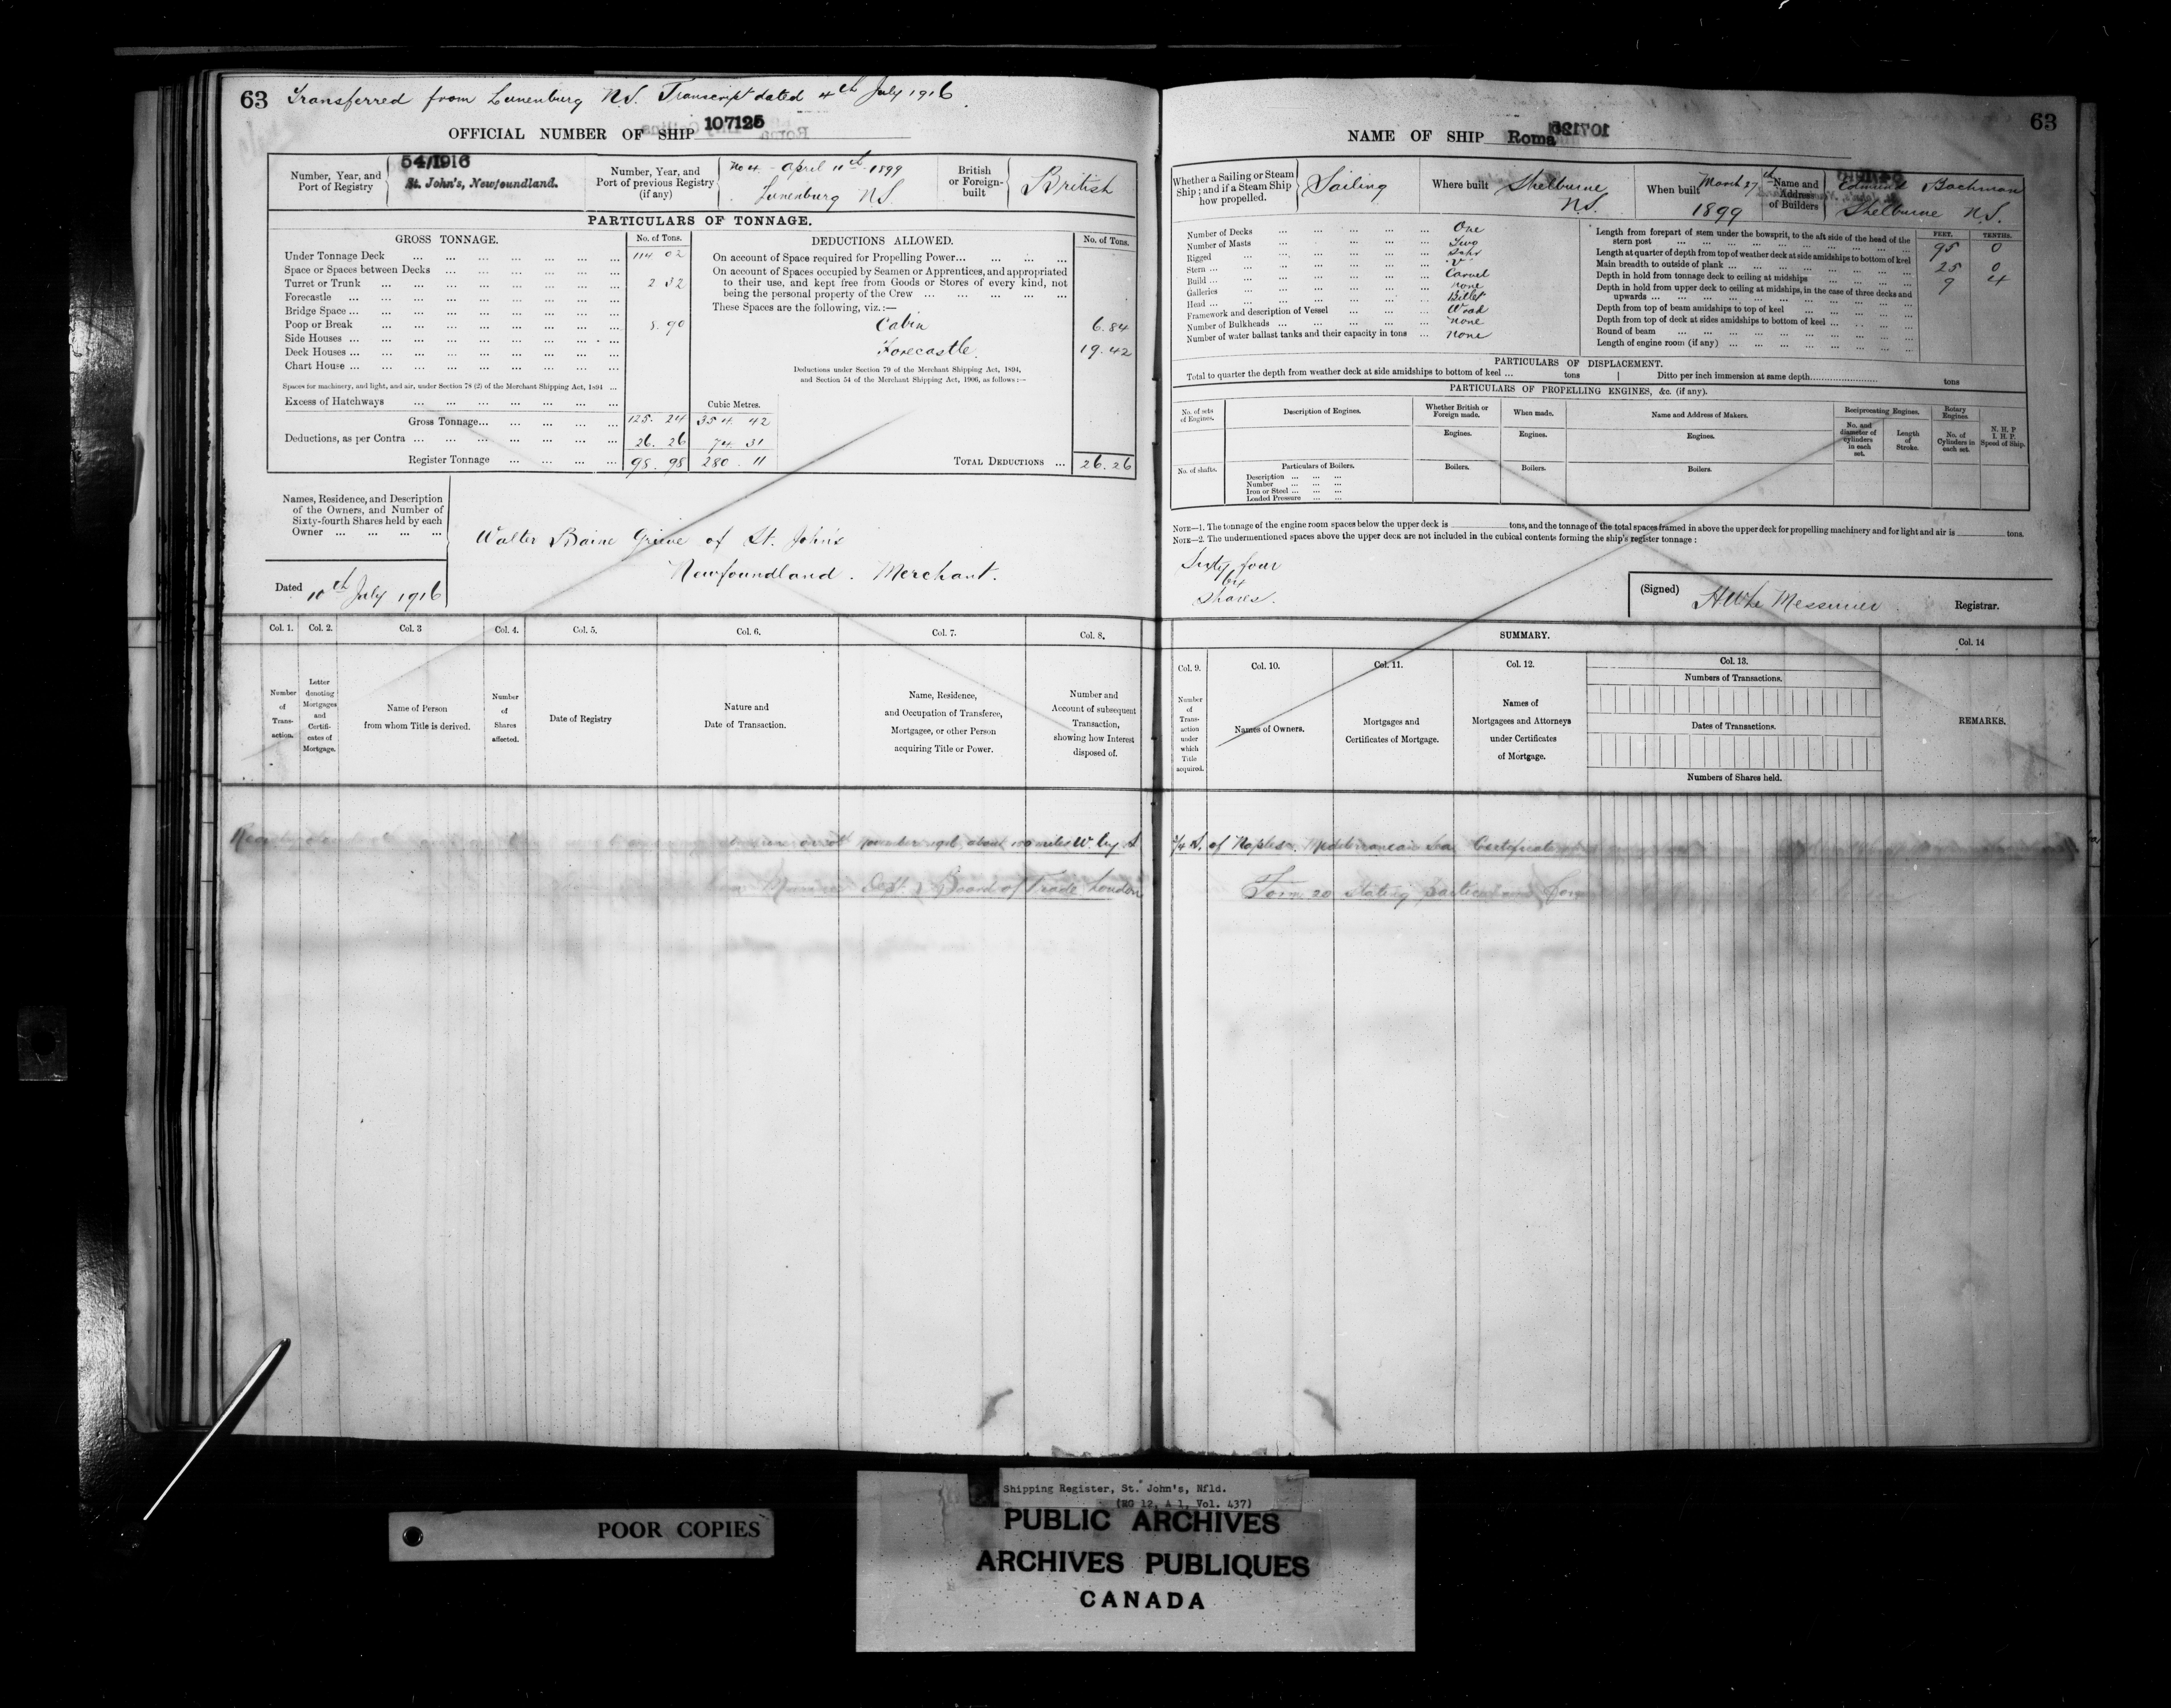 63 Transferred from Lunenburg N.S. Transcript dated 4th July 1916
OFFICIAL NUMBER OF SHIP 107125
Number, Year, and Port of Registry
54/1916
St. John's, Newfoundland.
Number, Year, and Port of previous Registry (if any)
No 4 - April 11th 1899
Lunenburg N.S.
British or Foreign-built
British
PARTICULARS OF TONNAGE.
GROSS TONNAGE. No. of Tons.
Under Tonnage Deck 114 02
Space or Spaces between Decks
Turret or Trunk 2 32
Forecastle
Bridge Space
Poop or Break 8.90
Side Houses
Deck Houses
Chart House
Spaces for machinery, and light, and air, under Section 78 (2) of the Merchant Shipping Act, 1894
Excess of Hatchways
Cubic Metres.
Gross Tonnage 125.24 354.42
Deductions, as per Contra 26.26 74.31
Register Tonnage 98.98 280.11
DEDUCTIONS ALLOWED. No. of Tons.
On account of Space required for Propelling Power
On account of Spaces occupied by Seamen or Apprentices, and appropriated
to their use, and kept free from Goods or Stores of every kind, not
being the personal property of the Crew
These Spaces are the following, viz.:—
Cabin 6.84
Forecastle. 19.42
Deductions under Section 79 of the Merchant Shipping Act, 1894,
and Section 54 of the Merchant Shipping Act, 1906, as follows:—
TOTAL DEDUCTIONS 26.26
Names, Residence, and Description
of the Owners, and Number of
Sixty-fourth Shares held by each
Owner
Walter Baine Grieve of St. John's
Newfoundland. Merchant.
Dated 10th July 1916
Col. 1. Col. 2. Col. 3 Col. 4. Col. 5. Col. 6. Col. 7. Col. 8.
Number of Transaction.
Letter denoting Mortgages and Certificates of Mortgage.
Name of Person from whom Title is derived.
Number of Shares affected.
Date of Registry
Nature and Date of Transaction.
Name, Residence, and Occupation of Transferee, Mortgagee, or other Person acquiring Title or Power.
Number and Account of subsequent Transaction, showing how Interest disposed of.
about 100 miles W. by S
Dept. Board of Trade London
63
NAME OF SHIP Roma
Whether a Sailing or Steam Ship; and if a Steam Ship how propelled.
Sailing
Where built
Shelburne N.S.
When built
March 27th 1899
Name and Address of Builders
Edmund Bachman
Shelburne N.S.
Number of Decks One
Number of Masts Two
Rigged Schr
Stern
Build Carvel
Galleries none
Head Billet
Framework and description of Vessel Wood
Number of Bulkheads none
Number of water ballast tanks and their capacity in tons none
FEET. TENTHS.
Length from forepart of stem under the bowsprit, to the aft side of the head of the stern post 95 0
Length at quarter of depth from top of weather deck at side amidships to bottom of keel
Main breadth to outside of plank 25 0
Depth in hold from tonnage deck to ceiling at midships 9 4
Depth in hold from upper deck to ceiling at midships, in the case of three decks and upwards
Depth from top of beam amidships to top of keel
Depth from top of deck at sides amidships to bottom of keel
Round of beam
Length of engine room (if any)
PARTICULARS OF DISPLACEMENT.
Total to quarter the depth from weather deck at side amidships to bottom of keel tons Ditto per inch immersion at same depth tons
PARTICULARS OF PROPELLING ENGINES, &c. (if any).
No. of sets of Engines.
Description of Engines.
Whether British or Foreign made.
When made.
Name and Address of Makers.
Reciprocating Engines.
Rotary Engines.
N. H. P
I. H. P.
Speed of Ship.
Engines. Engines. Engines.
No. and diameter of cylinders in each set.
Length of Stroke.
No. of Cylinders in each set.
No. of shafts.
Particulars of Boilers.
Boilers. Boilers. Boilers.
Description
Number
Iron or Steel
Loaded Pressure
NOTE—1. The tonnage of the engine room spaces below the upper deck is tons, and the tonnage of the total spaces framed in above the upper deck for propelling machinery and for light and air is tons.
NOTE—2. The undermentioned spaces above the upper deck are not included in the cubical contents forming the ship's register tonnage:
Sixty four
64
Shares.
(Signed) Registrar.
SUMMARY.
Col. 9. Col. 10. Col. 11. Col. 12. Col. 13. Col. 14
Number of Transaction under which Title acquired.
Names of Owners.
Mortgages and Certificates of Mortgage.
Names of Mortgagees and Attorneys under Certificates of Mortgage.
Numbers of Transactions.
Dates of Transactions.
Numbers of Shares held.
REMARKS.
3/4 S. of Naples. Mediterranean Sea Certificate
Form 20 stating particulars
POOR COPIES
Shipping Register, St. John's, Nfld.
(RG 12, A 1, Vol. 437)
PUBLIC ARCHIVES
ARCHIVES PUBLIQUES
CANADA